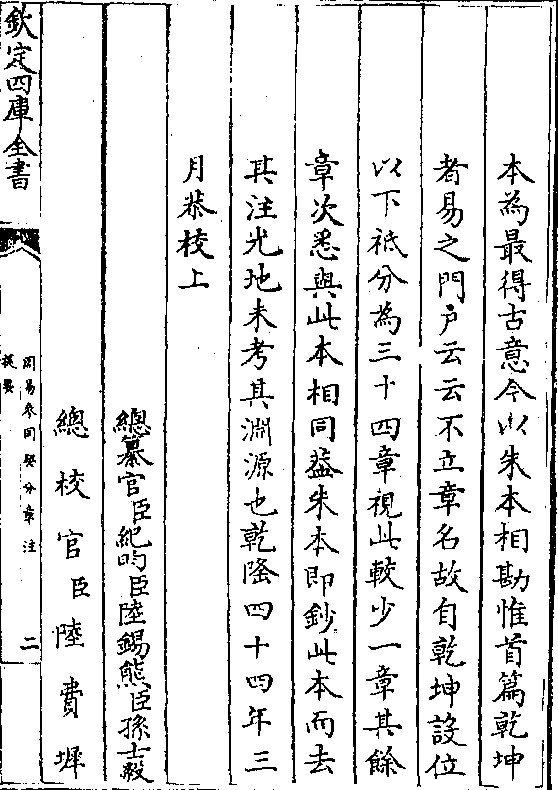 本為最得古意今以朱本相勘惟首篇乾坤
者易之門户云云不立章名故自乾坤設位
以下祗分為三十四章視此較少一章其餘
章次悉與此本相同葢朱本即鈔此本而去
其注光地未考其淵源也乾隆四十四年三
月恭校上
總纂官臣紀昀臣陸錫熊臣孫士毅
總校官臣陸費墀
欽定四庫全書
周易參同契分章注
提要
二